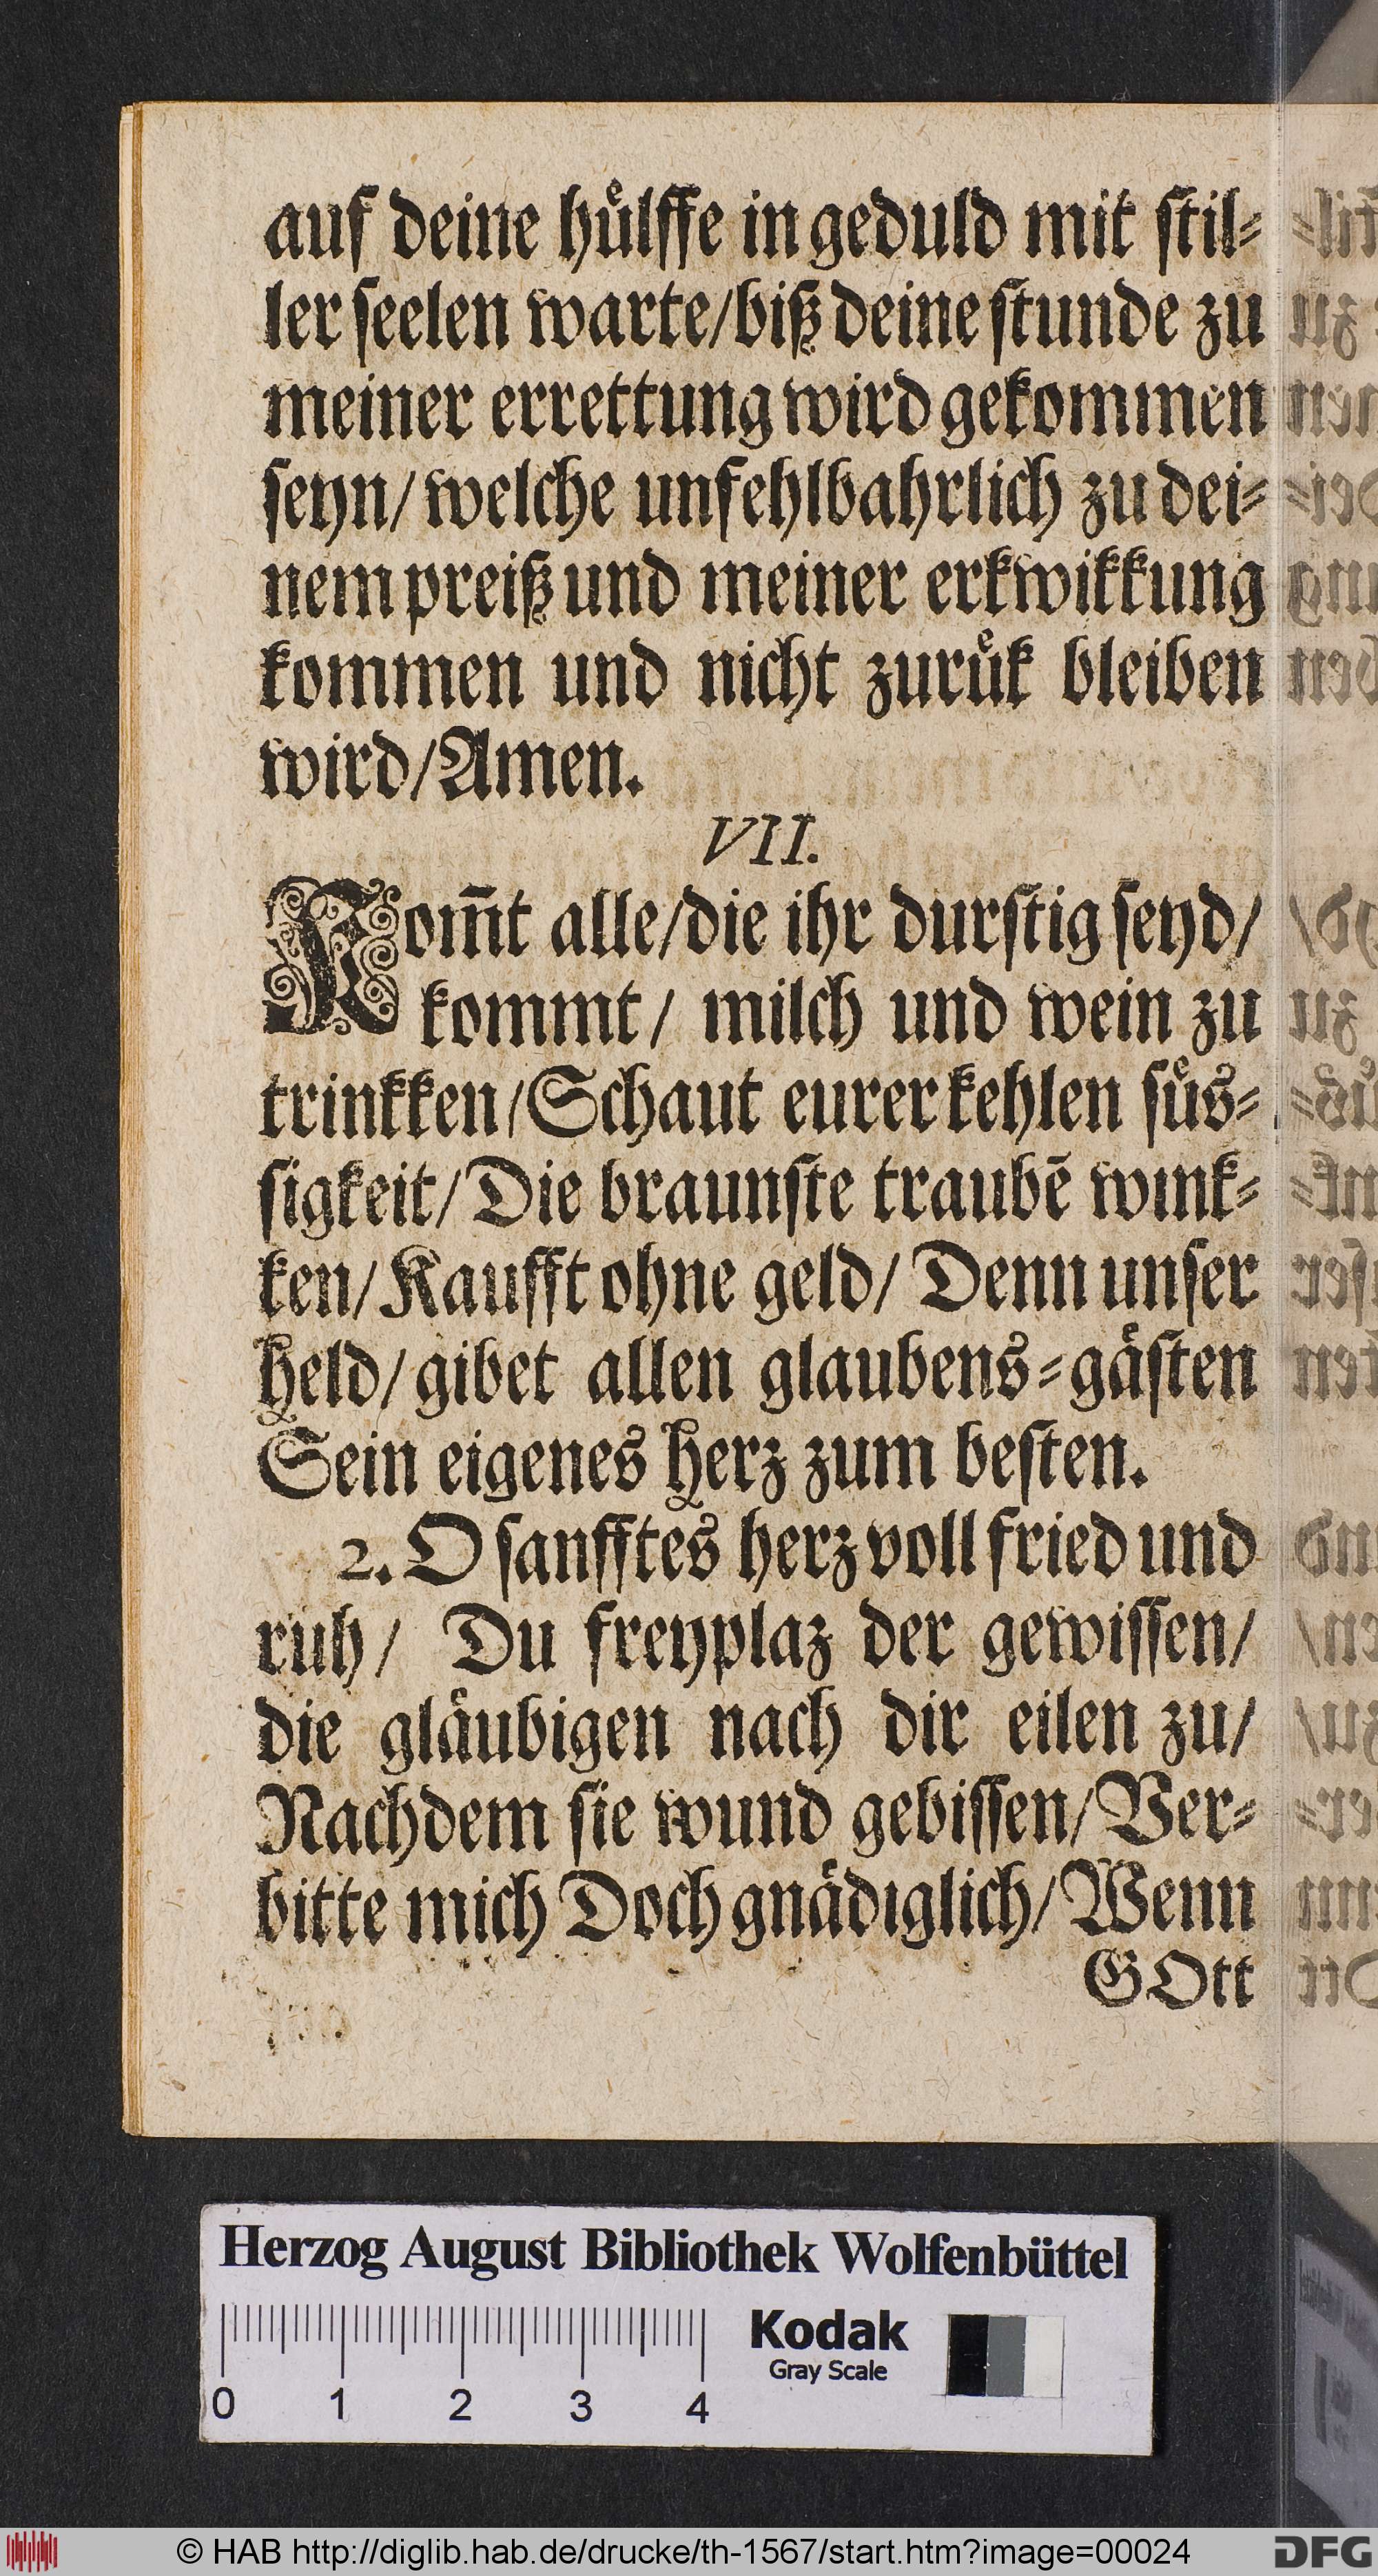 auf deine huͤlffe in geduld mit stil⸗
ler seelen warte/biß deine stunde zu
meiner errettung wird gekommen
seyn/ welche unfehlbahrlich zu dei⸗
nem preiß und meiner erkwikkung
kommen und nicht zuruͤk bleiben
wird/Amen.
VII.
Kom̃t alle/die ihr durstig seyd/
kommt/ milch und wein zu
trinkken/Schaut eurer kehlen suͤs⸗
sigkeit/ Die braunste traubẽ wink⸗
ken/ Kaufft ohne geld/ Denn unser
Held/ gibet allen glaubens⸗gaͤsten
Sein eigenes Herz zum besten.
2. O sanfftes herz voll fried und
ruh/ Du freyplaz der gewissen/
die glaͤubigen nach dir eilen zu/
Nachdem sie wund gebissen/ Ver⸗
bitte mich Doch gnaͤdiglich/ Wenn
GOtt
Herzog August Bibliothek Wolfenbüttel
Kodak
Gray Scale
0 1 2 3 4
© HAB http://diglib.hab.de/drucke/th-1567/start.htm?image=00024
DFG